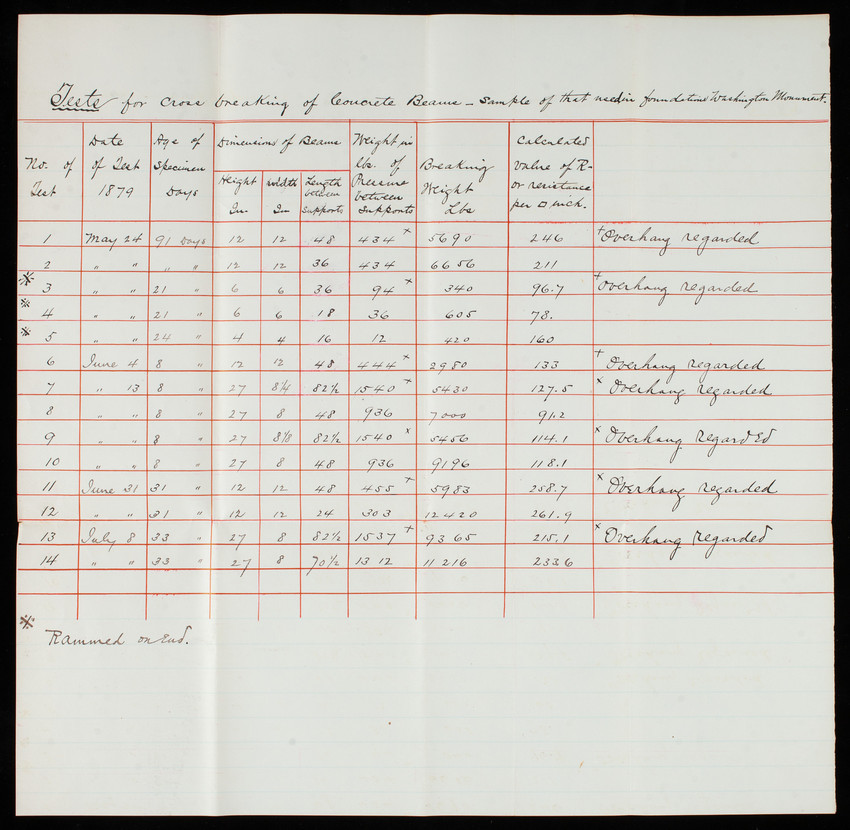 Tests for cross breaking of Concrete Beams — Sample of that used in foundations Washington Monument.
No. of Test | Date of Test 1879 | Age of Specimen Days | Dimensions of Beams: Height In | Width In | Length between supports | Weight in lbs. of Pressure between supports | Breaking Weight Lbs | Calculated value of R- or resistance per □ inch.
1 | May 24 | 91 Days | 12 | 12 | 48 | 434 + | 5690 | 246 | + Overhang regarded
2 | " " | " " | 12 | 12 | 36 | 434 | 6656 | 211
※ 3 | " " | 21 " | 6 | 6 | 36 | 94 + | 340 | 96.7 | + Overhang regarded
※ 4 | " " | 21 " | 6 | 6 | 18 | 36 | 605 | 78.
※ 5 | " " | 24 " | 4 | 4 | 16 | 12 | 420 | 160
6 | June 4 | 8 " | 12 | 12 | 48 | 444 + | 2980 | 133 | + Overhang regarded
7 | " 13 | 8 " | 27 | 8 1/4 | 82 1/2 | 1540 + | 5430 | 127.5 | × Overhang regarded
8 | " " | 8 " | 27 | 8 | 48 | 936 | 7000 | 91.2
9 | " " | 8 " | 27 | 8 1/8 | 82 1/2 | 1540 × | 5456 | 114.1 | × Overhang regarded
10 | " " | 8 " | 27 | 8 | 48 | 936 | 9196 | 118.1
11 | June 31 | 31 " | 12 | 12 | 48 | 455 + | 5983 | 258.7 | × Overhang regarded
12 | " " | 31 " | 12 | 12 | 24 | 303 | 12420 | 261.9
13 | July 8 | 33 " | 27 | 8 | 82 1/2 | 1537 + | 9365 | 215.1 | × Overhang regarded
14 | " " | 33 " | 27 | 8 | 70 1/2 | 1312 | 11216 | 233 6
※ Rammed on End.